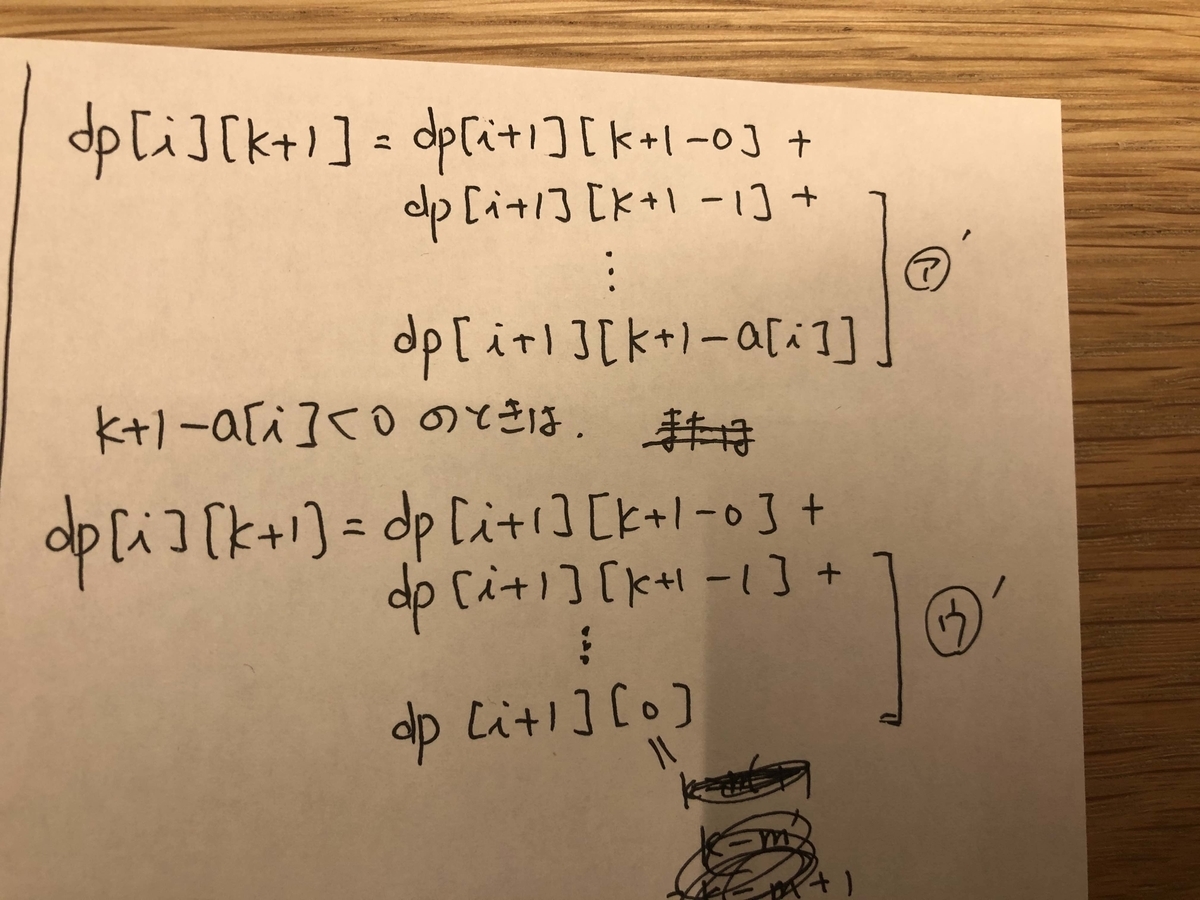 dp[i][k+1] = dp[i+1][k+1-0] +
dp[i+1][k+1-1] +
⋮
㋐'
dp[i+1][k+1-a[i]]
k+1-a[i]<0 のときは.
dp[i][k+1] = dp[i+1][k+1-0] +
dp[i+1][k+1-1] +
⋮
㋒'
dp[i+1][0]
=
k-m'
k-m+1